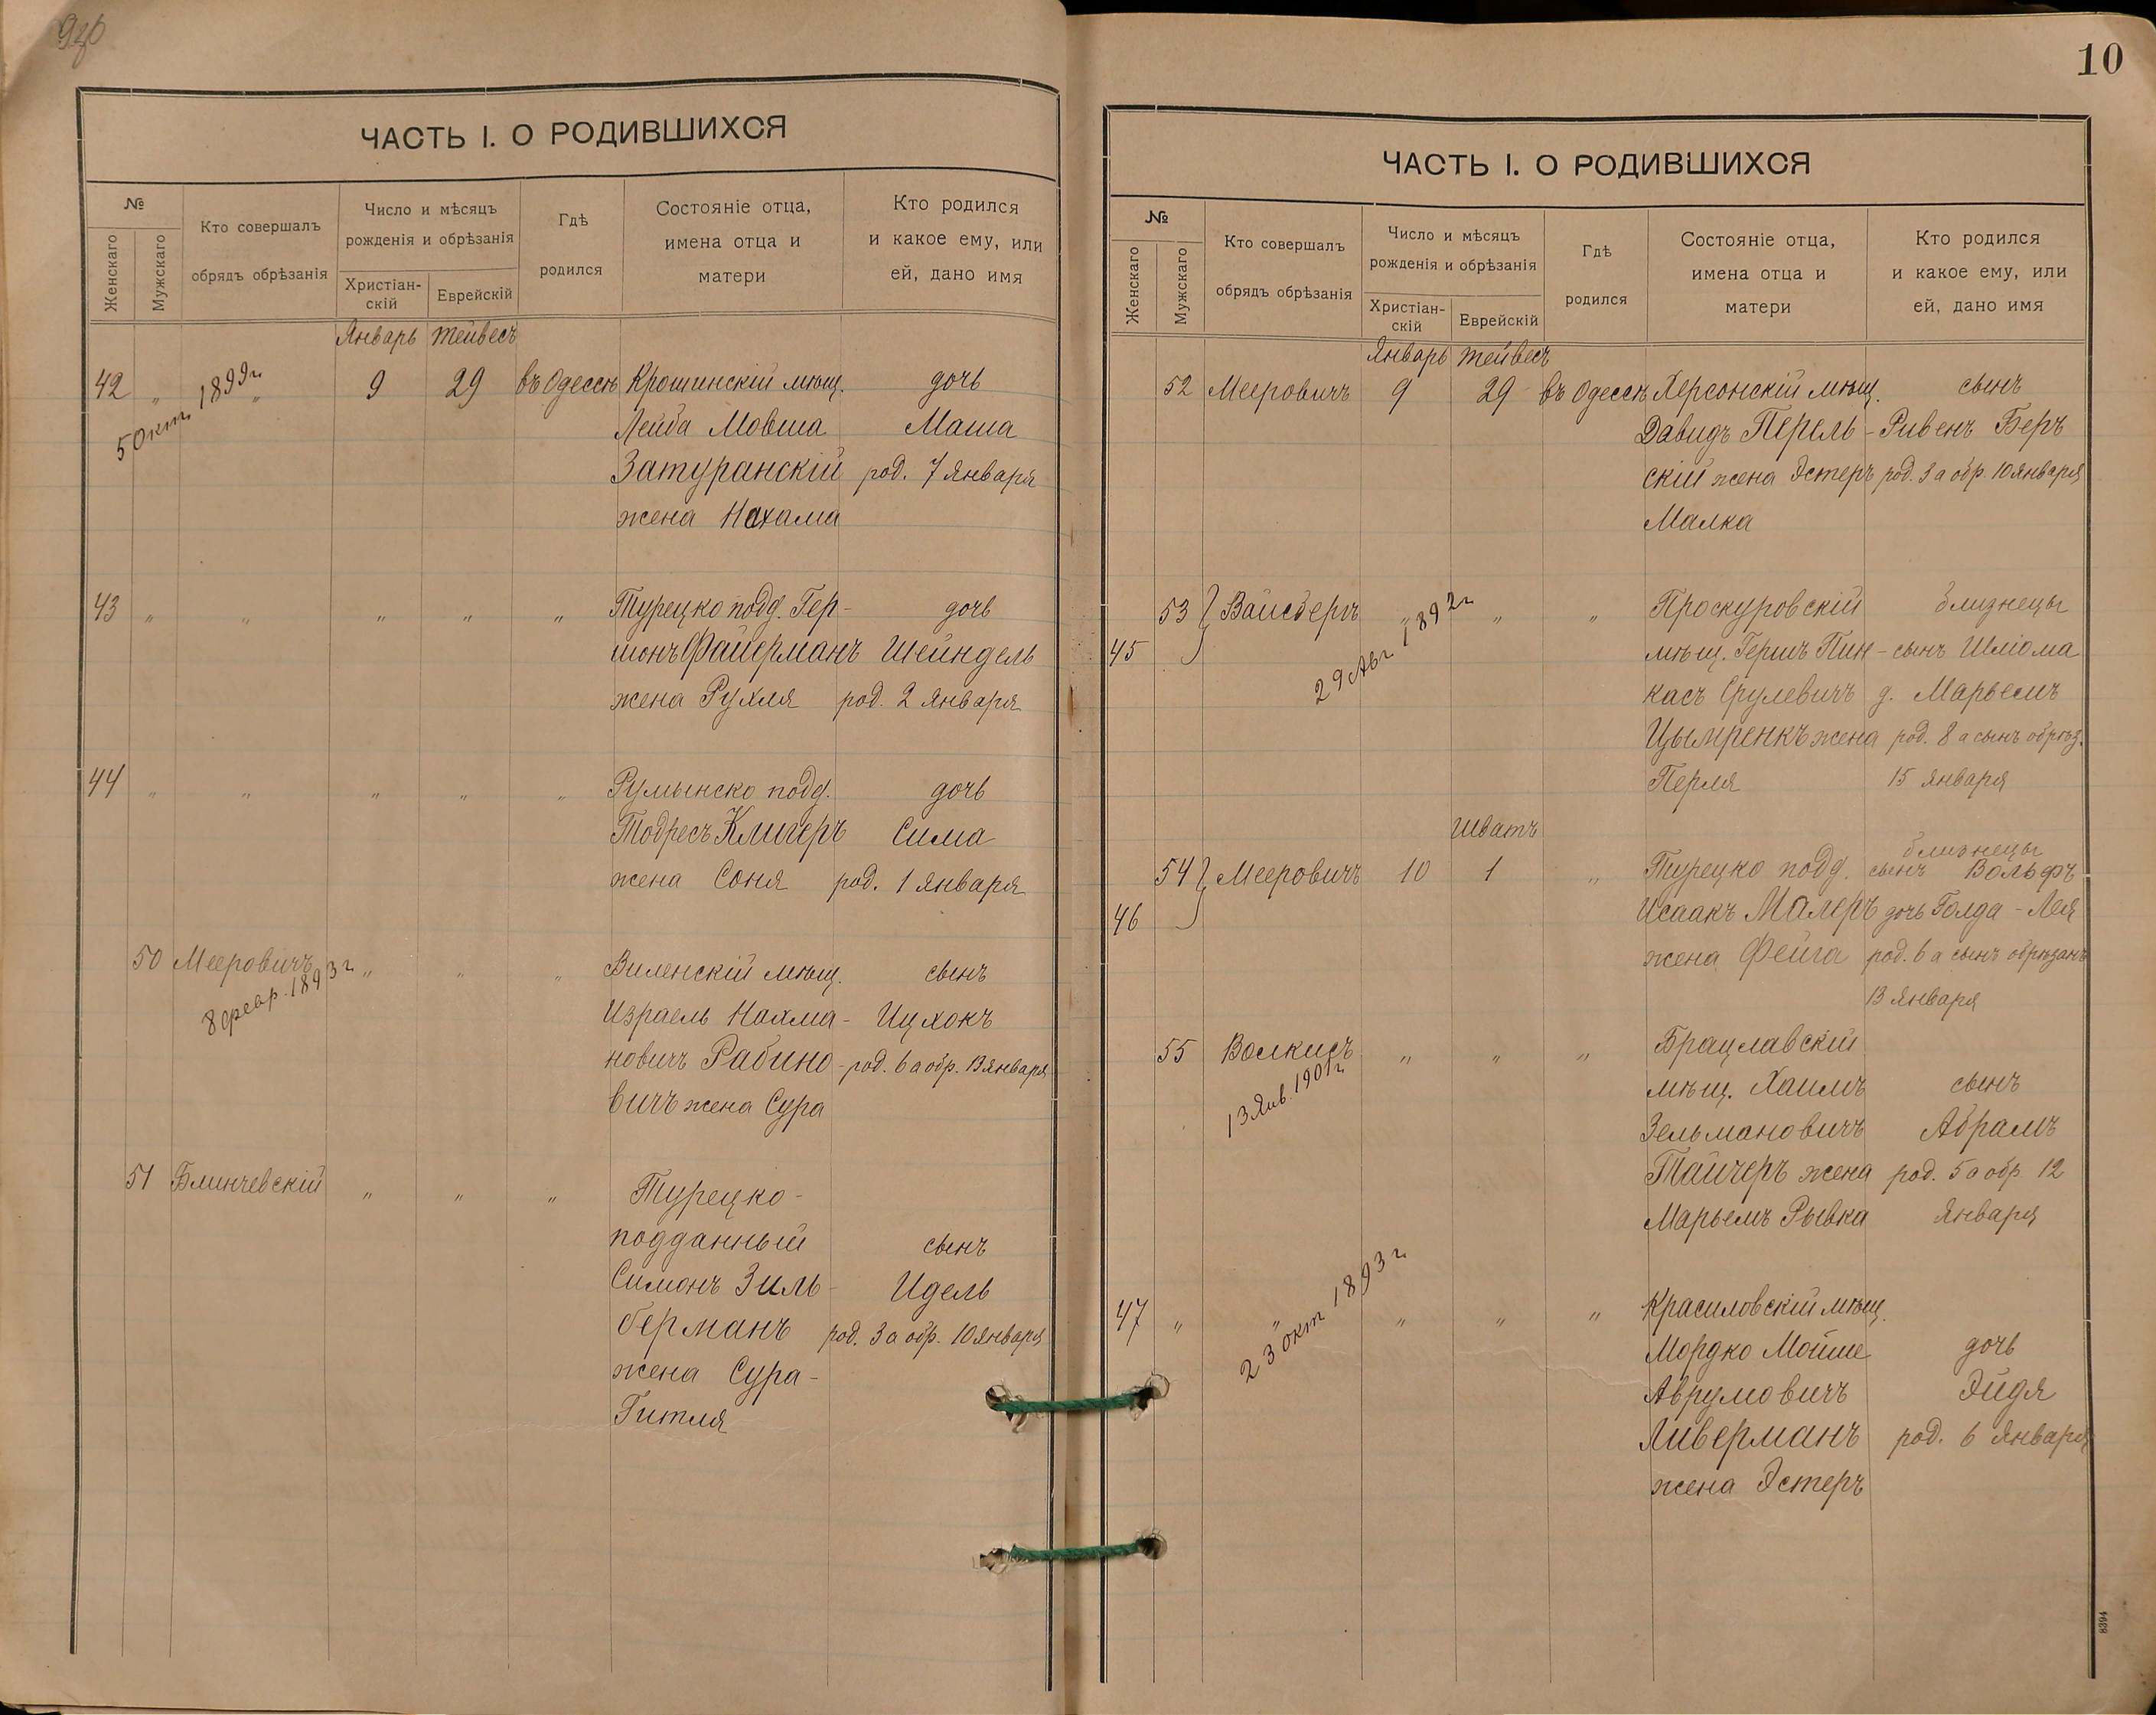 ЧАСТЬ I. О РОДИВШИХСЯ
№
Женскаго
Мужскаго
Кто совершалъ
обрядъ обрѣзанія
Число и мѣсяцъ
рожденія и обрѣзанія
Христіан-
скій
Еврейскій
Гдѣ
родился
Состояніе отца,
имена отца и
матери
Кто родился
и какое ему, или
ей, дано имя
Январь Тейвесъ
42 " " 9 29 въ Одессѣ Крошинскій мѣщ. дочь
5 Окт. 1899 г.
Лейба Мовша Маша
Затуранскій род. 7 Января
жена Нахама
43 " " " " " Турецко подд. Гер- дочь
шонъ Файерманъ Шейндель
жена Рухля род. 2 Января
44 " " " " " Румынско подд. дочь
Тодресъ Клигеръ Сима
жена Соня род. 1 Января
50 Мееровичъ " " " Виленскій мѣщ. сынъ
8 февр. 1893 г.
Израель Нахма- Ицхокъ
новичъ Рабино- род. 6 а обр. 13 Января
вичъ жена Сура
51 Блинчевскій " " " Турецко-
подданный сынъ
Симонъ Зиль- Идель
берманъ род. 3 а обр. 10 Января
жена Сура-
Гитля
10
ЧАСТЬ I. О РОДИВШИХСЯ
№
Женскаго
Мужскаго
Кто совершалъ
обрядъ обрѣзанія
Число и мѣсяцъ
рожденія и обрѣзанія
Христіан-
скій
Еврейскій
Гдѣ
родился
Состояніе отца,
имена отца и
матери
Кто родился
и какое ему, или
ей, дано имя
Январь Тейвесъ
52 Мееровичъ 9 29 въ Одессѣ Херсонскій мѣщ. сынъ
Давидъ Перель- Ривенъ Беръ
скій жена Эстеръ род. 3 а обр. 10 Января
Малка
53 Вайсбергъ " " " Проскуровскій близнецы
29 Авг 1892 г.
45 мѣщ. Гершъ Пин- сынъ Шлiома
касъ Срулевичъ д. Марьемъ
Цымренкъ жена род. 8 а сынъ обрѣз.
Перля 15 Января
Шватъ
близнецы
54 Мееровичъ 10 1 " Турецко подд. сынъ Вольфъ
46 Исаакъ Малеръ дочь Голда-Лея
жена Фейга род. 6 а сынъ обрѣзанъ
13 Января
55 Волкисъ " " " Брацлавскій
13 Янв. 1901 г.
мѣщ. Хаимъ сынъ
Зельмановичъ Абрамъ
Тайчеръ жена род. 5 а обр 12
Марьемъ Рывка Января
47 " " " " " Красиловскій мѣщ.
23 окт 1893 г.
Мордко Мойше дочь
Аврумовичъ Эйдя
Ливерманъ род. 6 Января
жена Эстеръ
8394